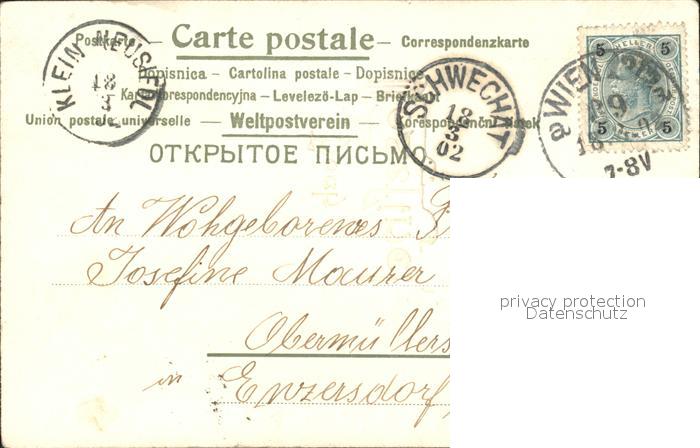 Postkarte — Carte postale — Correspondenzkarte
Dopisnica — Cartolina postale — Dopisnice
Karta korespondencyjna — Levelező-Lap — Briefkaart
Union postale universelle — Weltpostverein — Correspondenční lístek
ОТКРЫТОЕ ПИСЬМО
KLEIN NEUSIEDL
18
3
SCHWECHAT
18
3
02
WIEN
9
18
7-8V
5 HELLER 5
5 5
An Wohgeborenes
Josefine Maurer
Obermüllers
in Enzersdorf
privacy protection
Datenschutz